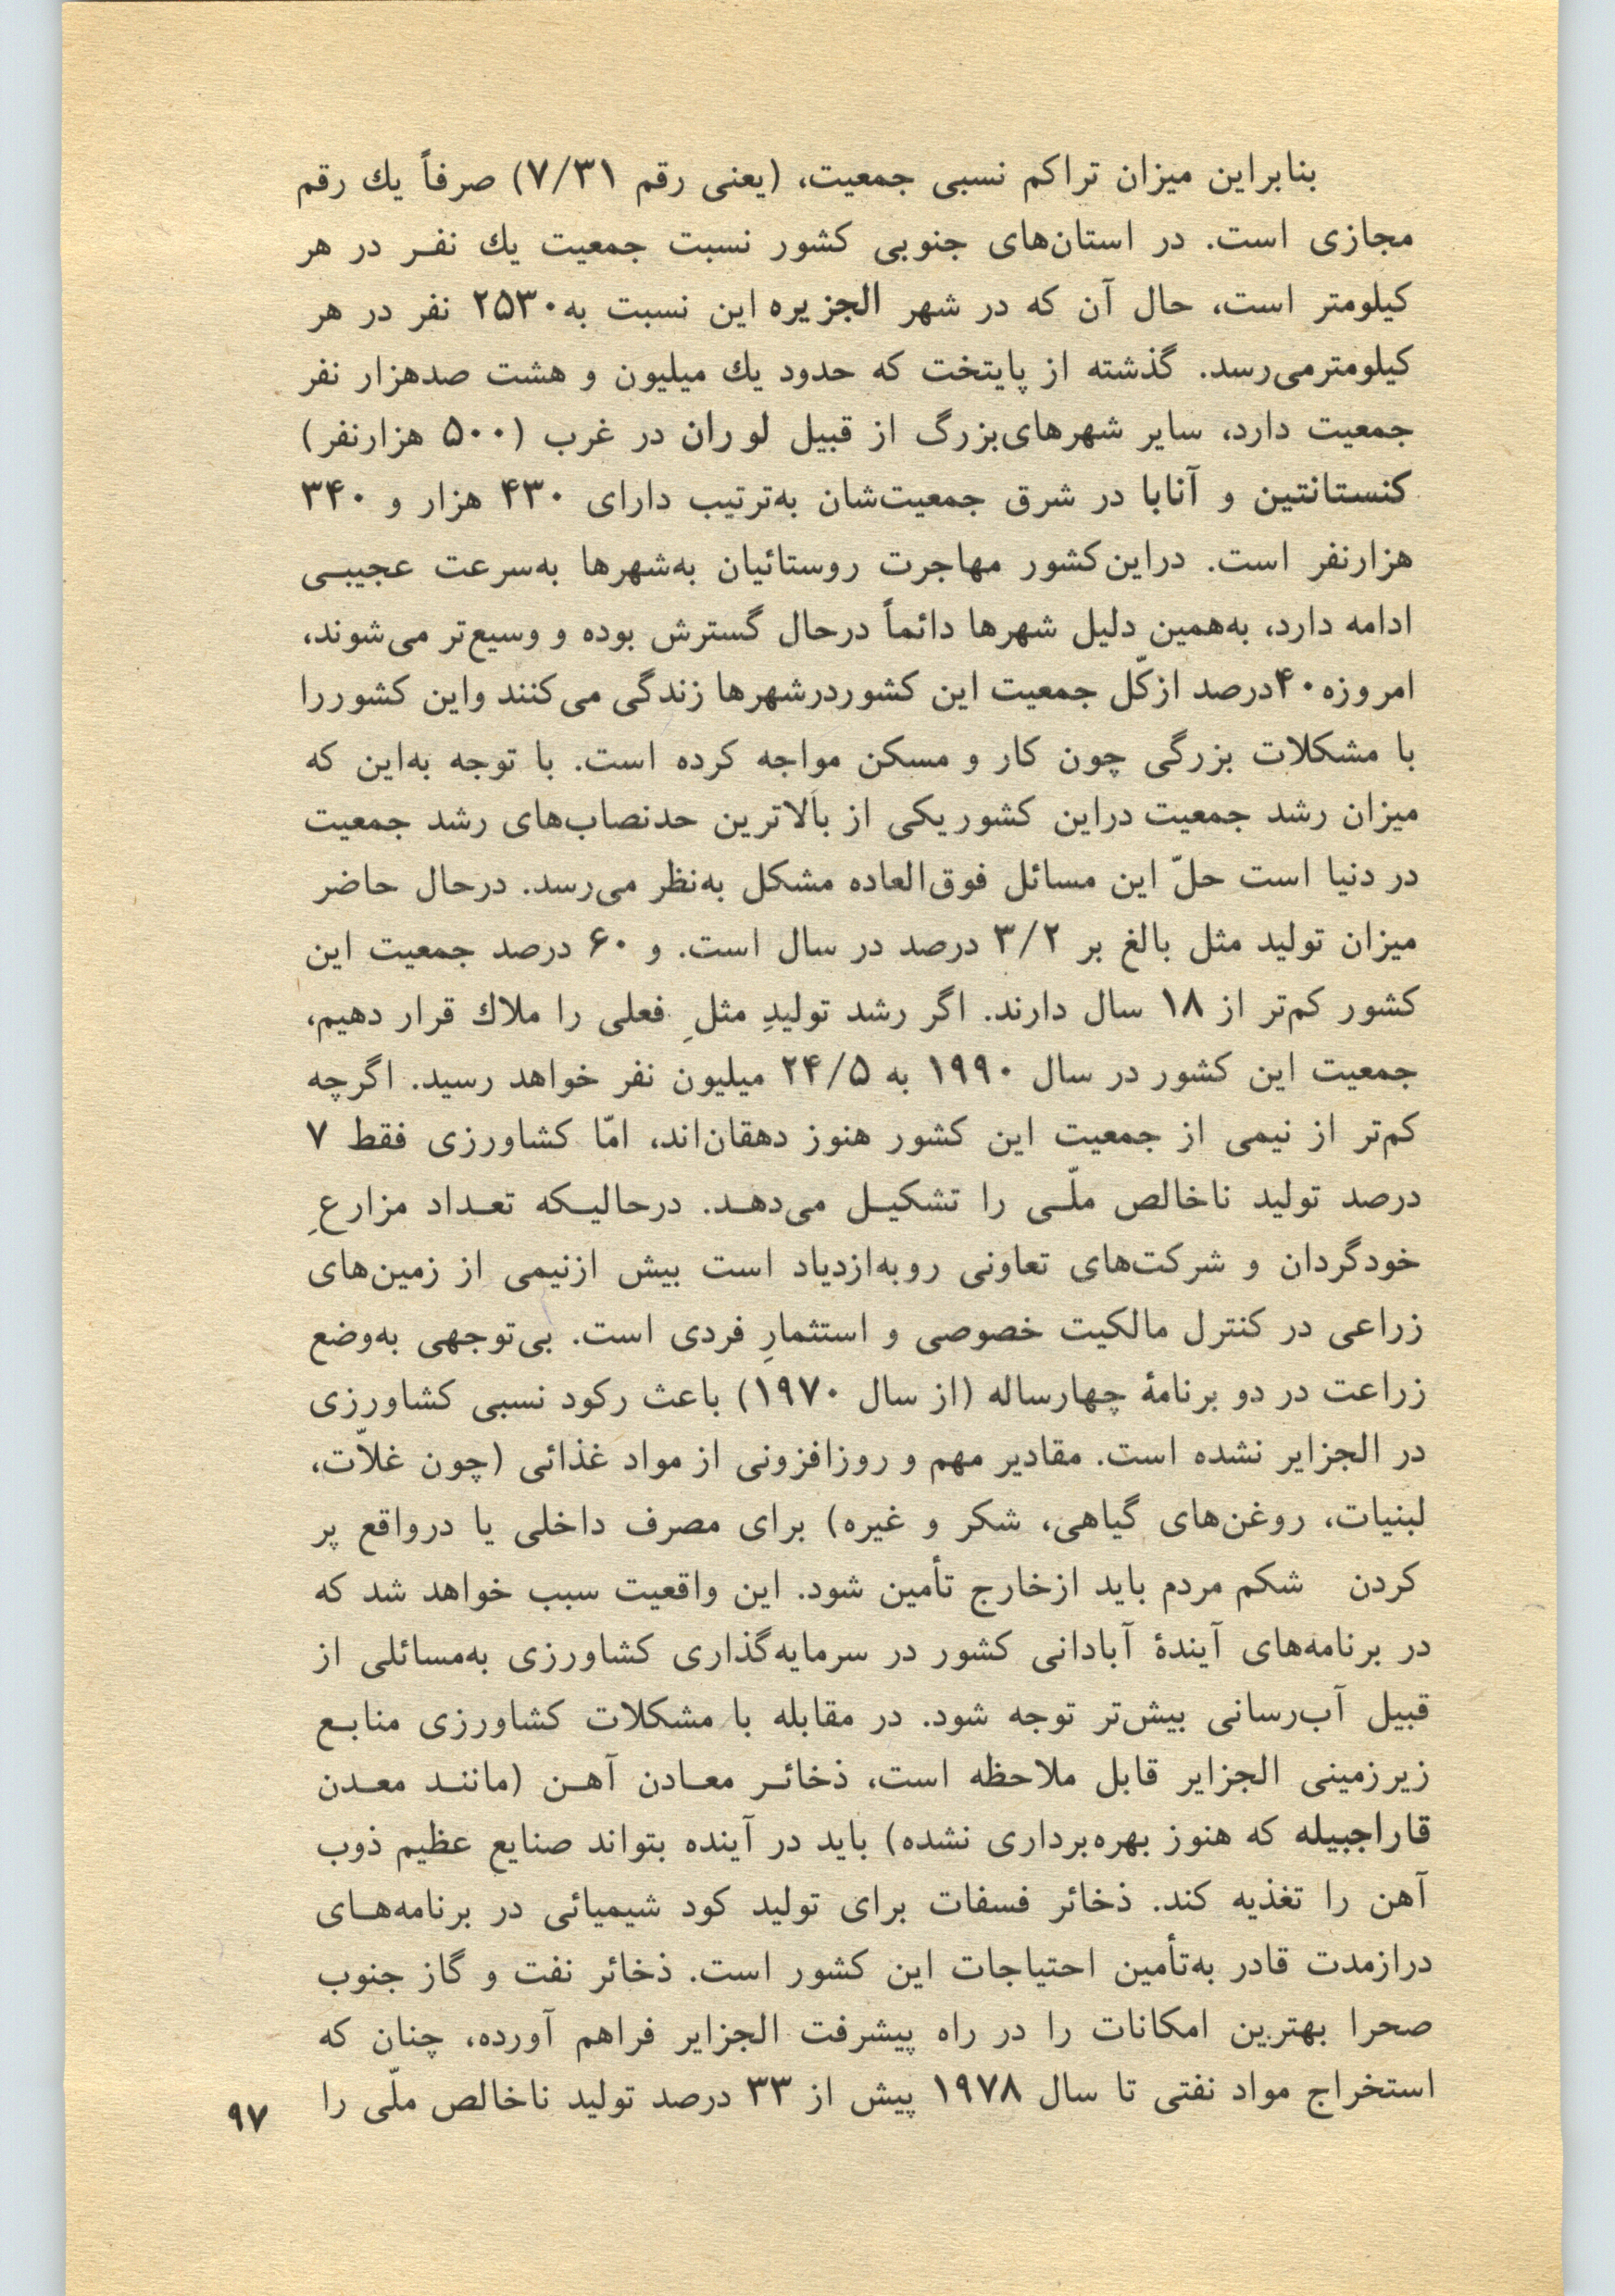 بنابراین میزان تراکم نسبی جمعیت، (یعنی رقم ۷/۳۱) صرفاً یك رقم
مجازی است. در استان‌های جنوبی کشور نسبت جمعیت یك نفـر در هر
کیلومتر است، حال آن که در شهر الجزیره این نسبت به ۲۵۳۰ نفر در هر
کیلومترمی‌رسد. گذشته از پایتخت که حدود یك میلیون و هشت صدهزار نفر
جمعیت دارد، سایر شهرهای‌بزرگ از قبیل لوران در غرب (۵۰۰ هزارنفر)
کنستانتین و آنابا در شرق جمعیت‌شان به‌ترتیب دارای ۴۳۰ هزار و ۳۴۰
هزارنفر است. دراین‌کشور مهاجرت روستائیان به‌شهرها به‌سرعت عجیبـی
ادامه دارد، به‌همین دلیل شهرها دائماً درحال گسترش بوده و وسیع‌تر می‌شوند،
امروزه ۴۰درصد ازکّل جمعیت این کشوردرشهرها زندگی می‌کنند واین کشوررا
با مشکلات بزرگی چون کار و مسکن مواجه کرده است. با توجه به‌این که
میزان رشد جمعیت دراین کشوریکی از بالاترین حدنصاب‌های رشد جمعیت
در دنیا است حلّ این مسائل فوق‌العاده مشکل به‌نظر می‌رسد. درحال حاضر
میزان تولید مثل بالغ بر ۳/۲ درصد در سال است. و ۶۰ درصد جمعیت این
کشور کم‌تر از ۱۸ سال دارند. اگر رشد تولیدِ مثلِ فعلی را ملاك قرار دهیم،
جمعیت این کشور در سال ۱۹۹۰ به ۲۴/۵ میلیون نفر خواهد رسید. اگرچه
کم‌تر از نیمی از جمعیت این کشور هنوز دهقان‌اند، امّا کشاورزی فقط ۷
درصد تولید ناخالص ملّـی را تشکیـل می‌دهـد. درحالیـکه تعـداد مزارعِ
خودگردان و شرکت‌های تعاونی روبه‌ازدیاد است بیش ازنیمی از زمین‌های
زراعی در کنترل مالکیت خصوصی و استثمارِ فردی است. بی‌توجهی به‌وضع
زراعت در دو برنامهٔ چهارساله (از سال ۱۹۷۰) باعث رکود نسبی کشاورزی
در الجزایر نشده است. مقادیر مهم و روزافزونی از مواد غذائی (چون غلاّت،
لبنیات، روغن‌های گیاهی، شکر و غیره) برای مصرف داخلی یا درواقع پر
کردن شکم مردم باید ازخارج تأمین شود. این واقعیت سبب خواهد شد که
در برنامه‌های آیندهٔ آبادانی کشور در سرمایه‌گذاری کشاورزی به‌مسائلی از
قبیل آب‌رسانی بیش‌تر توجه شود. در مقابله با مشکلات کشاورزی منابـع
زیرزمینی الجزایر قابل ملاحظه است، ذخائـر معـادن آهـن (ماننـد معـدن
قاراجبیله که هنوز بهره‌برداری نشده) باید در آینده بتواند صنایع عظیم ذوب
آهن را تغذیه کند. ذخائر فسفات برای تولید کود شیمیائی در برنامه‌هـای
درازمدت قادر به‌تأمین احتیاجات این کشور است. ذخائر نفت و گاز جنوب
صحرا بهترین امکانات را در راه پیشرفت الجزایر فراهم آورده، چنان که
استخراج مواد نفتی تا سال ۱۹۷۸ پیش از ۳۳ درصد تولید ناخالص ملّی را
۹۷